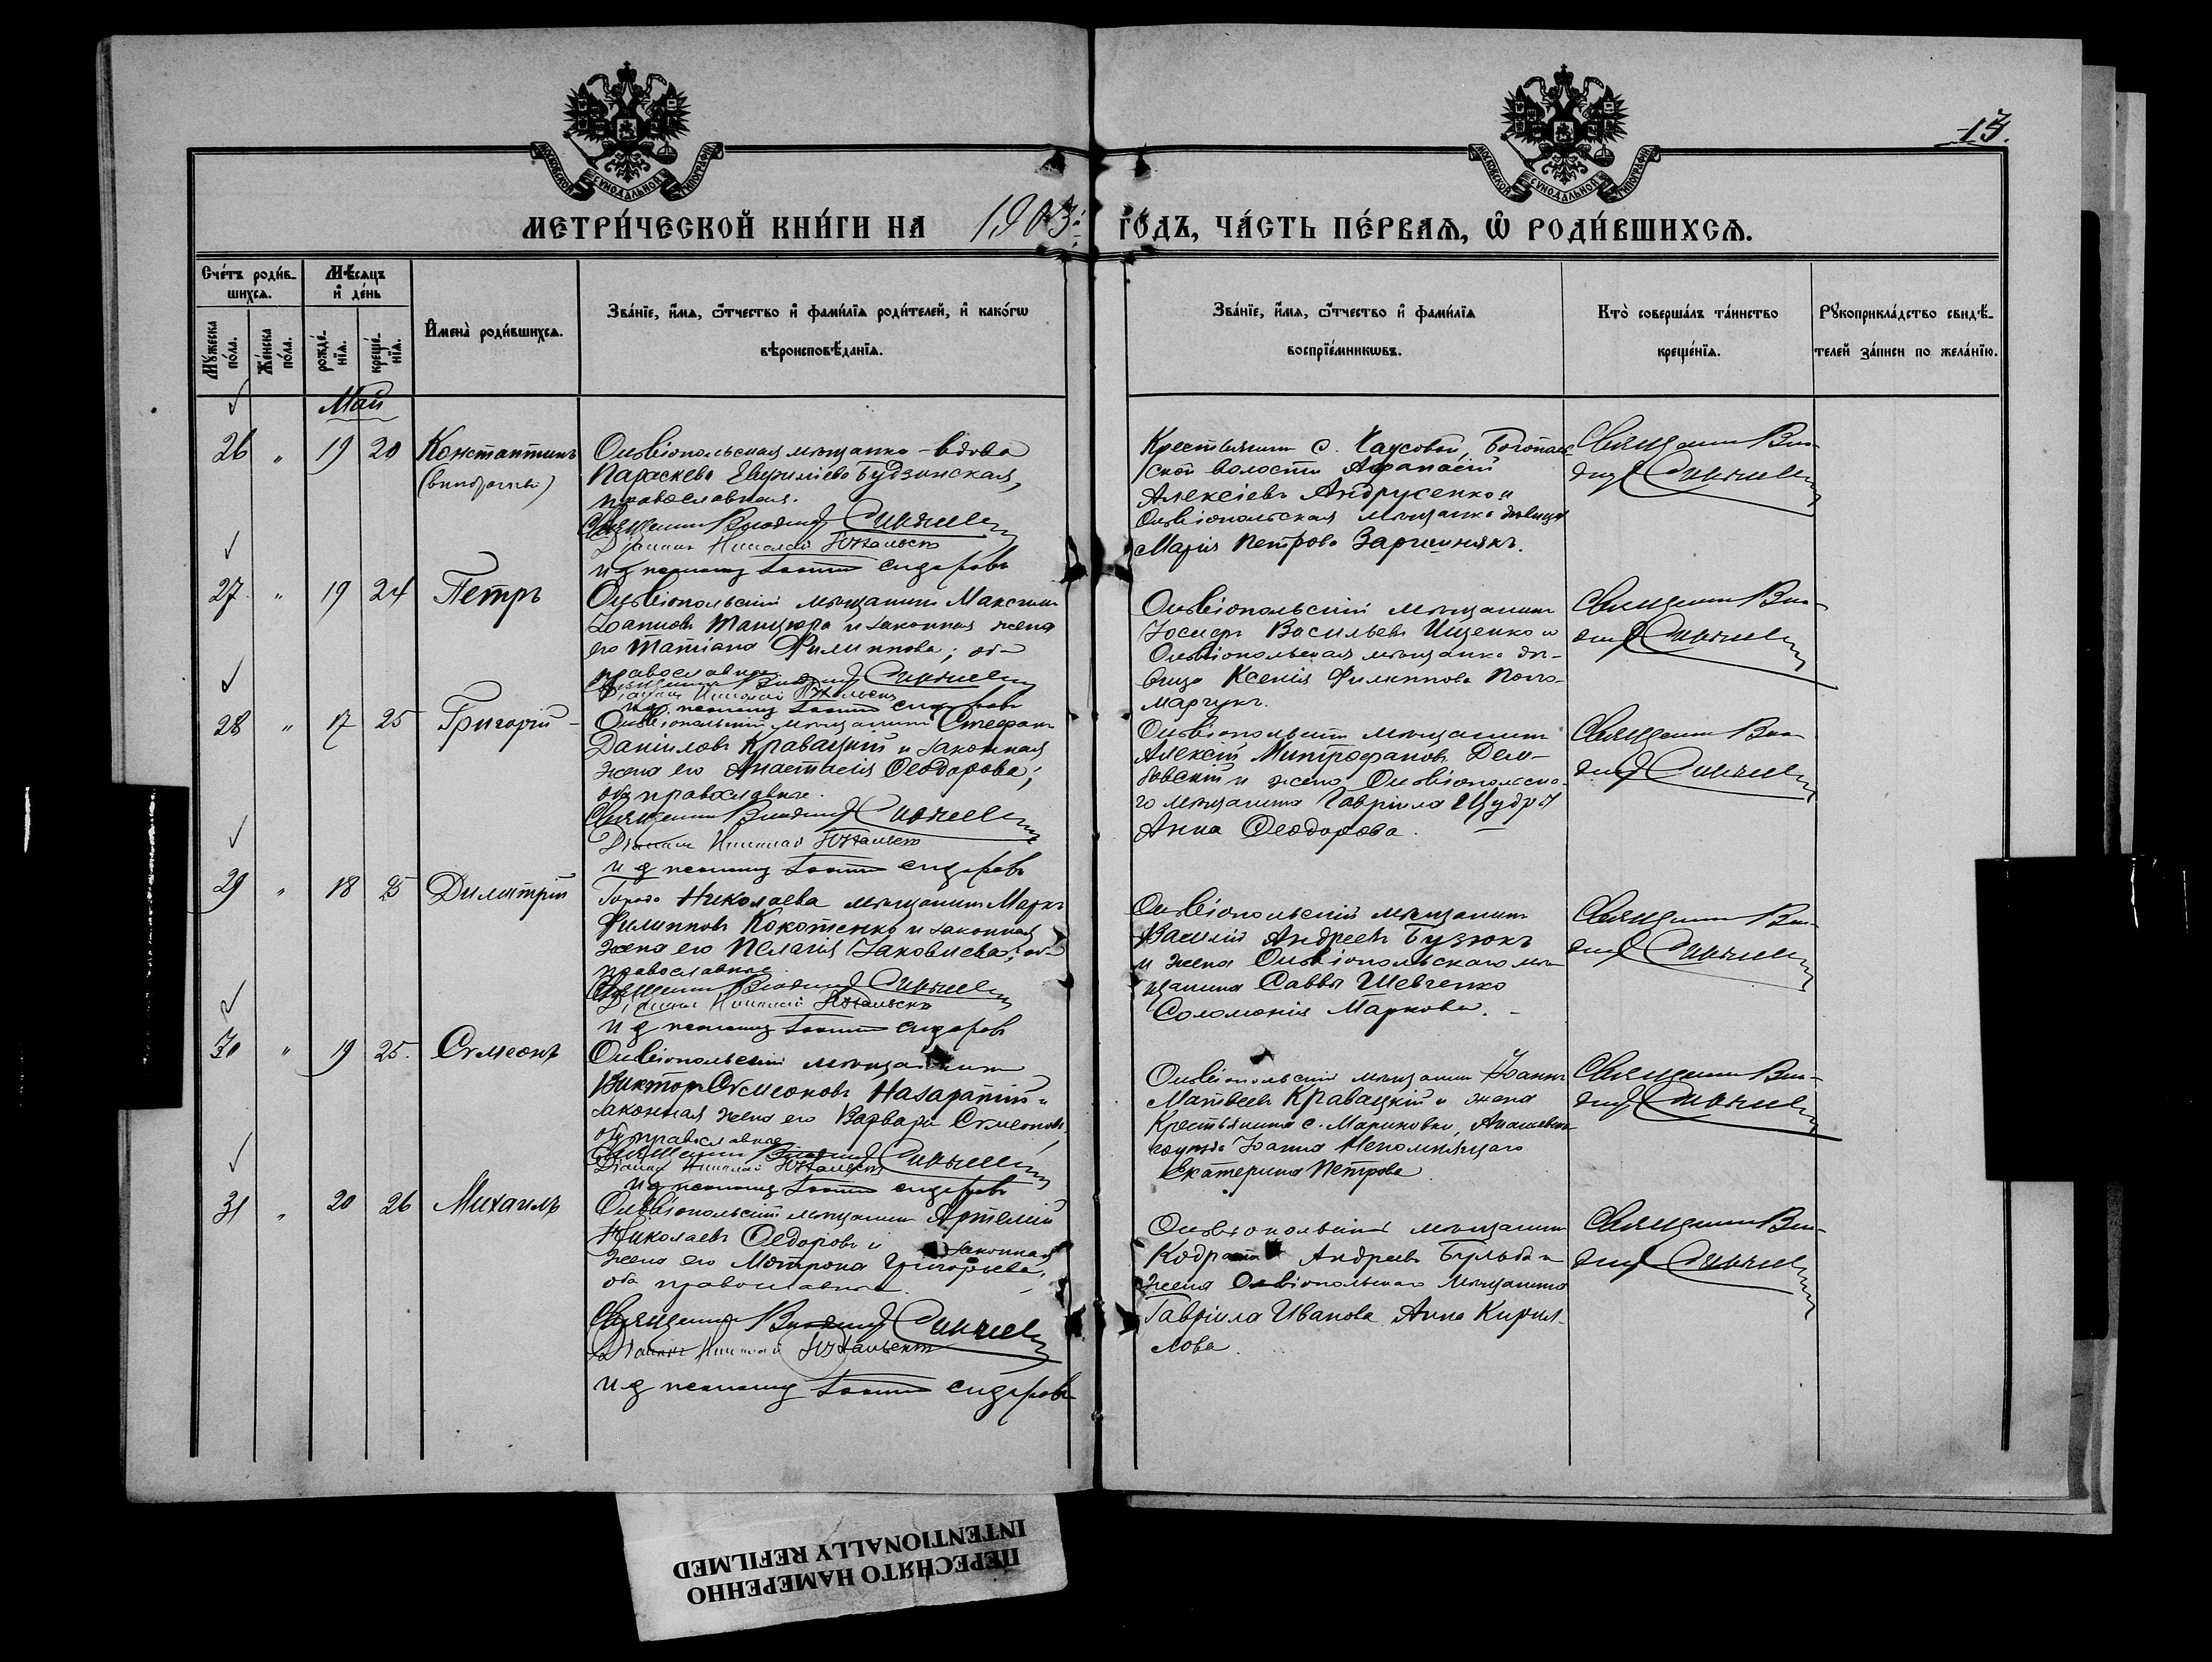 МОСКОВСКОЙ СѴНОДАЛЬНОЙ ТИПОГРАФІИ
МОСКОВСКОЙ СѴНОДАЛЬНОЙ ТИПОГРАФІИ
МЕТРИ́ЧЕСКОЙ КНИ́ГИ НА 1903 ГО́ДЪ, ЧА́СТЬ ПЕ́РВАѦ, Ѡ҆ РОДИ́ВШИХСѦ.
Сче́тъ роди́в-
шихсѧ.
Мꙋ́жеска
по́ла.
Же́нска
по́ла.
Мѣ́сѧцъ
и҆ де́нь
рожде́-
нїѧ.
креще́-
нїѧ.
И҆мена̀ роди́вшихсѧ.
Зва́нїе, и҆́мѧ, ѻ҆́тчество и҆ фами́лїѧ роди́телей, и҆ како́гѡ
вѣроисповѣ́данїѧ.
Зва́нїе, и҆́мѧ, ѻ҆́тчество и҆ фами́лїѧ
воспрїе́мникѡвъ.
Кто̀ соверша́лъ та́инство
креще́нїѧ.
Рꙋкоприкла́дство свидѣ́-
телей за́писи по жела́нїю.
Май
26 " 19 20 Константинъ
(внебрачный)
Ольвіопольская мѣщанка - вдова
Параскева Евфиміева Будзинская,
православная.
Священникъ Владимір
Діаконъ Николай
и д псаломщ Сидоровъ
Крестьянинъ с. Чаусовой, Богополь
ской волости Афанасій
Алексіевъ Андрусенко и
Ольвіопольская мѣщанка дѣвица
Марія Петрова
Священникъ Вла-
димір
27 " 19 24 Петръ
Ольвіопольскій мѣщанинъ Максимъ
Іоанновъ Танцюра и законная жена
его Татіана Филиппова; оба
православные
Священникъ Владимір
Діаконъ Николай
и д псаломщ Сидоровъ
Ольвіопольскій мѣщанинъ
Іосифъ Васильевъ Ищенко и
Ольвіопольская мѣщанка дѣ-
вица Ксенія Филиппова Поно-
марчукъ.
Священникъ Вла-
димір
28 " 17 25 Григорій
Ольвіопольскій мѣщанинъ Стефанъ
Даніиловъ Кравацкій и законная
жена его Анастасія Ѳеодорова;
оба православные.
Священникъ Владимір
Діаконъ Николай
и д псаломщ Сидоровъ
Ольвіопольскій мѣщанинъ
Алексій Митрофановъ Дем-
бовскій и жена Ольвіопольска-
го мѣщанина Гавріила
Анна Ѳеодорова.
Священникъ Вла-
димір
29 " 18 25 Димитрій
Города Николаева мѣщанинъ Маркъ
Филипповъ Кокотенко и законная
жена его Пелагія Іаковлева; оба
православные.
Священникъ Владимір
Діаконъ Николай
и д псаломщ Сидоровъ
Ольвіопольскій мѣщанинъ
Василій Андреевъ Бузюкъ
и жена Ольвіопольскаго мѣ-
щанина Саввы Шевченко
Соломонія Маркова.
Священникъ Вла-
димір
30 " 19 25. Сѵмеонъ
Ольвіопольскій мѣщанинъ
Викторъ Сѵмеоновъ Назаратій и
законная жена его Варвара Сѵмеонова,
оба православные
Священникъ Владимір
Діаконъ Николай
и д псаломщ Сидоровъ
Ольвіопольскій мѣщанинъ Іоаннъ
Матвеевъ Кравацкій и жена
Крестьянина с. Мариновки, Ананьевск
уѣзда Іоанна Непомнящаго
Екатерина Петрова.
Священникъ Вла-
димір
31 " 20 26 Михаилъ
Ольвіопольскій мѣщанинъ Артемій
Николаевъ Ѳедоровъ и законная
жена его Матрона Григорьева,
оба православные.
Священникъ Владимір
Діаконъ Николай
и д псаломщ Сидоровъ
Ольвіопольскій мѣщанинъ
Кодратъ Андреевъ Бульба и
жена Ольвіопольскаго мѣщанина
Гавріила Иванова Анна Кирил-
лова.
Священникъ Вла-
димір
ПЕРЕСНЯТО НАМЕРЕННО
INTENTIONALLY REFILMED